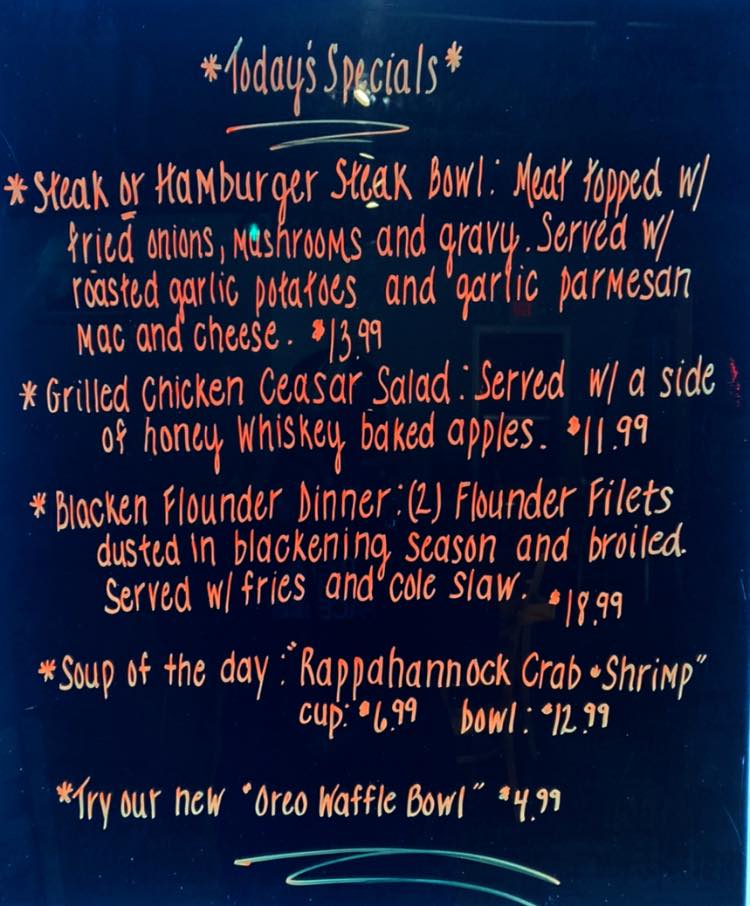 *Today's Specials*
*Steak or Hamburger Steak Bowl: Meat topped w/
fried onions, mushrooms and gravy. Served w/
roasted garlic potatoes and garlic parmesan
Mac and cheese. $13.99
*Grilled Chicken Ceasar Salad: Served w/ a side
of honey whiskey baked apples. $11.99
*Blacken Flounder Dinner: (2) Flounder Filets
dusted in blackening season and broiled.
Served w/ fries and cole slaw. $18.99
*Soup of the day: "Rappahannock Crab & Shrimp"
cup: $6.99 bowl: $12.99
*Try our new "Oreo Waffle Bowl" $4.99